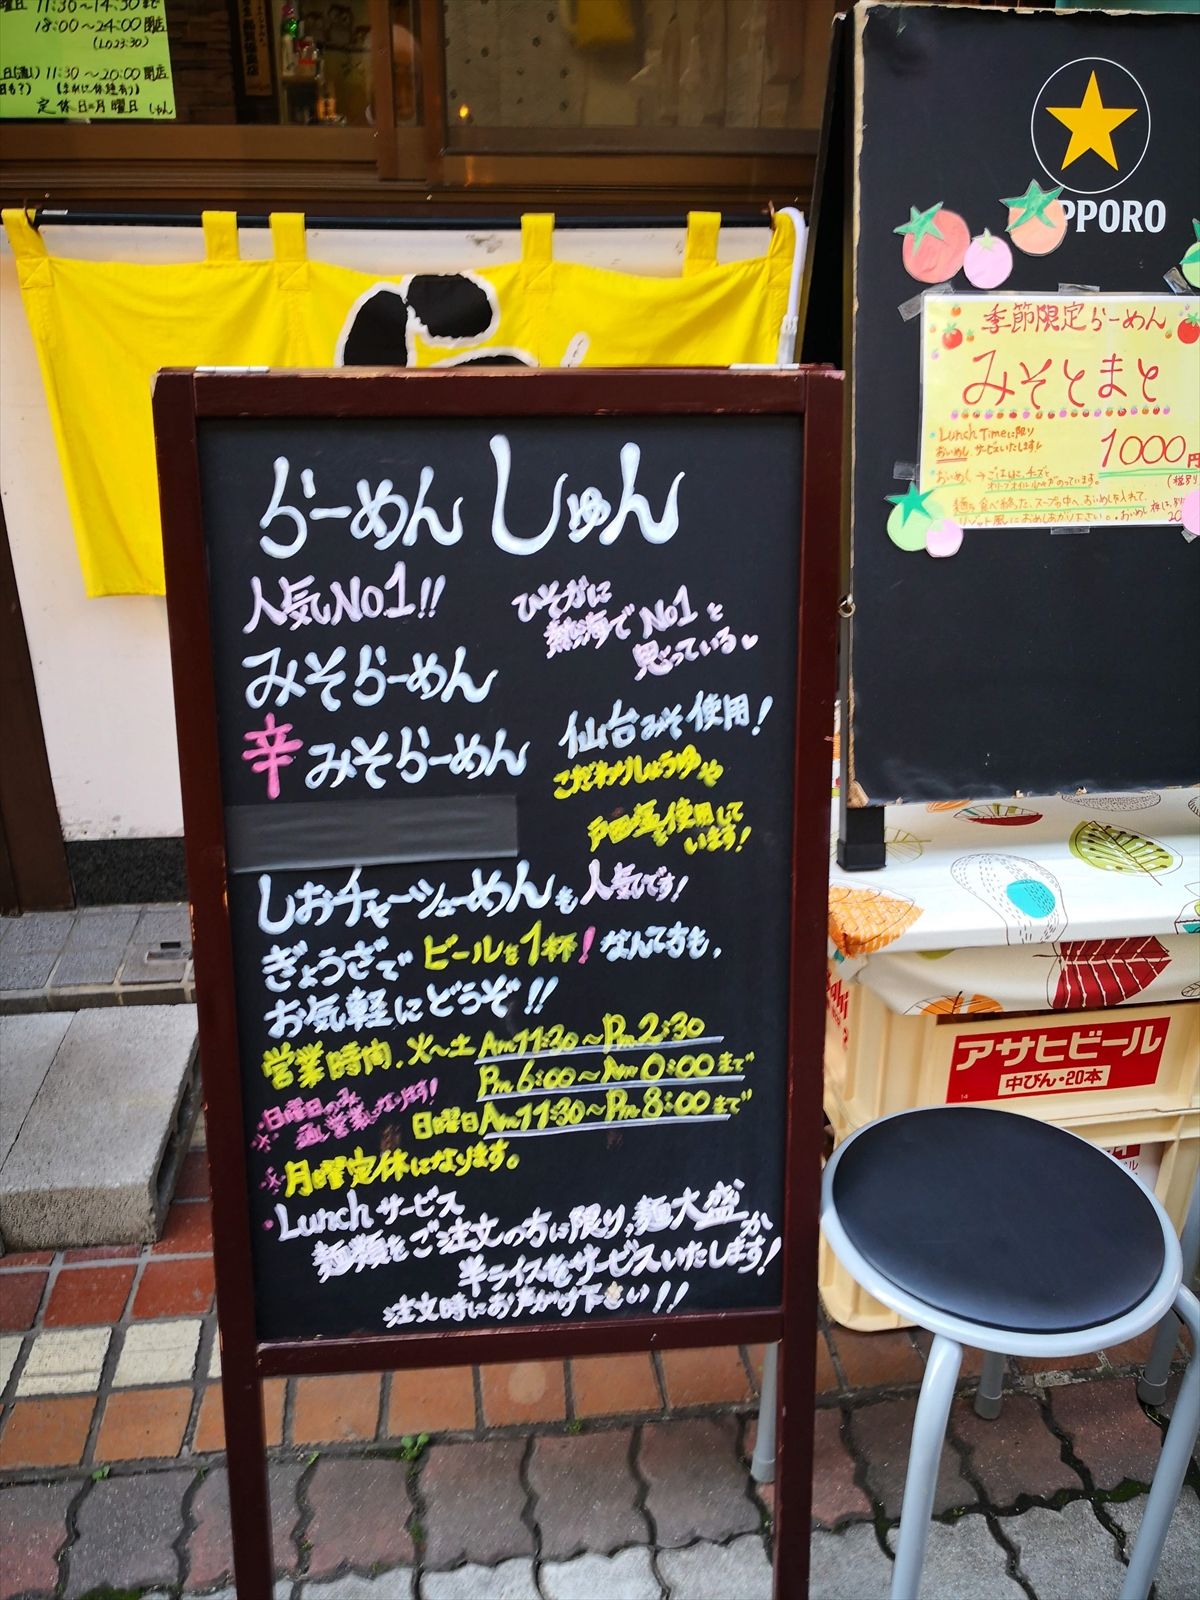 11:30〜14:30まで
18:00〜24:00閉店
(LO23:30)
11:30〜20:00閉店
定休日=月曜日 しゅん
PPORO
季節限定らーめん
みそとまと
Lunch Timeに限り
おいめし サービスいたします!
1000円
おいめし→ごはんに、チーズと
オリーブオイル
麺を食べ終わった、スープの中へ おいめしを入れて、
リゾット風にお召しあがり下さい。
らーめん しゅん
人気No1!!
ひそかに
熱海でNo1と
思っている
みそらーめん
辛みそらーめん
仙台みそ使用!
こだわりしょうゆや
戸田塩を使用して
います!
しおチャーシューめんも人気です!
ぎょうざでビールを1杯!なんて方も、
お気軽にどうぞ!!
営業時間、火〜土 Am11:30〜Pm2:30
Pm6:00〜Am0:00まで
※日曜日のみ
通し営業になります!
日曜日Am11:30〜Pm8:00まで
※月曜定休になります。
・Lunchサービス
麺類をご注文の方に限り、麺大盛か
半ライスをサービスいたします!
注文時にお声がけ下さい!!
アサヒビール
中びん・20本